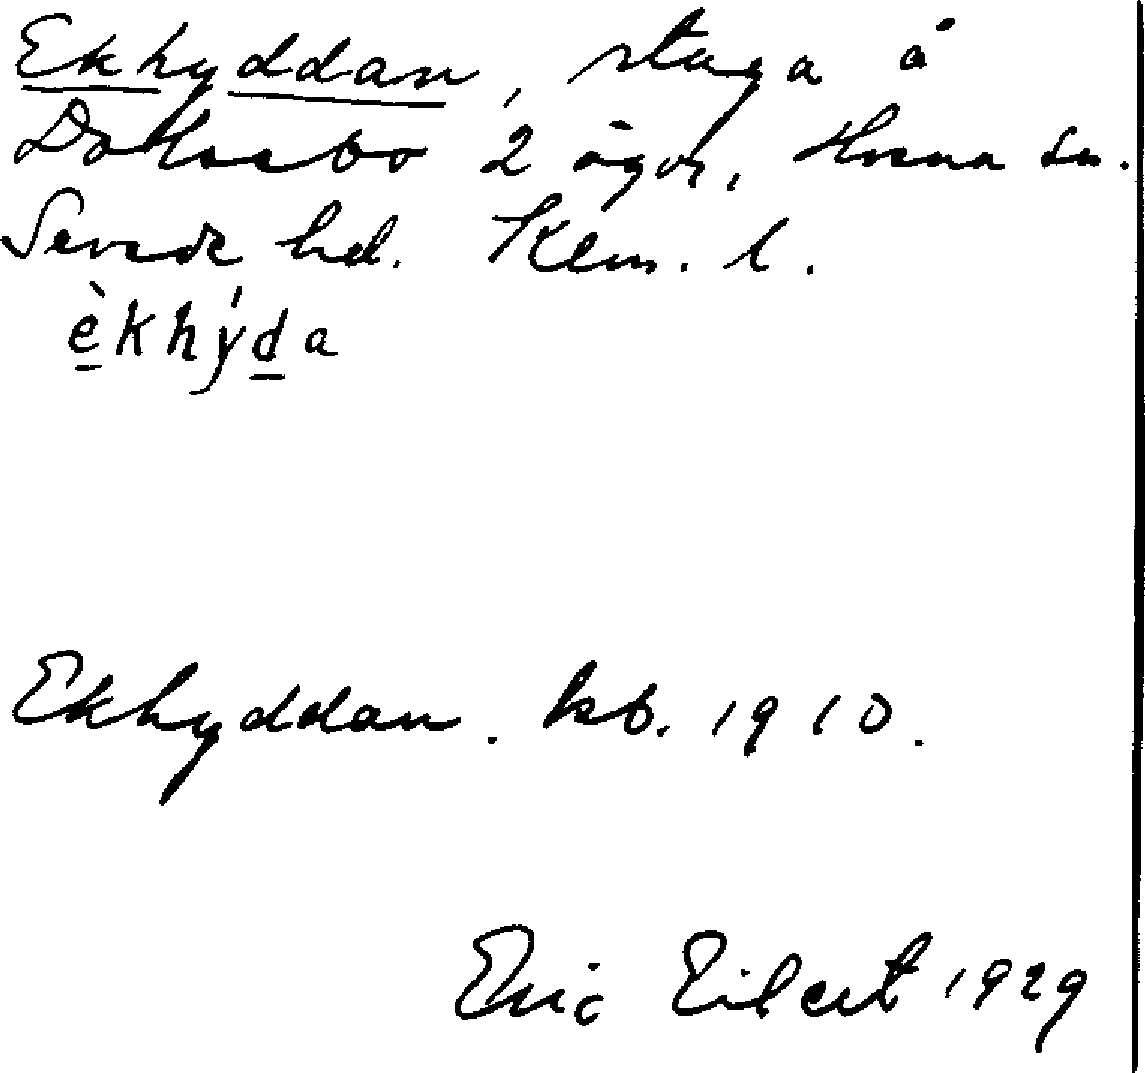 Ekhyddan, stuga å
2 ägor, Hvena sn.
Sevede hd. Klm. l.
è̱khý̍ḏa
Ekhyddan. kb. 1910.
Eric Eilert 1929